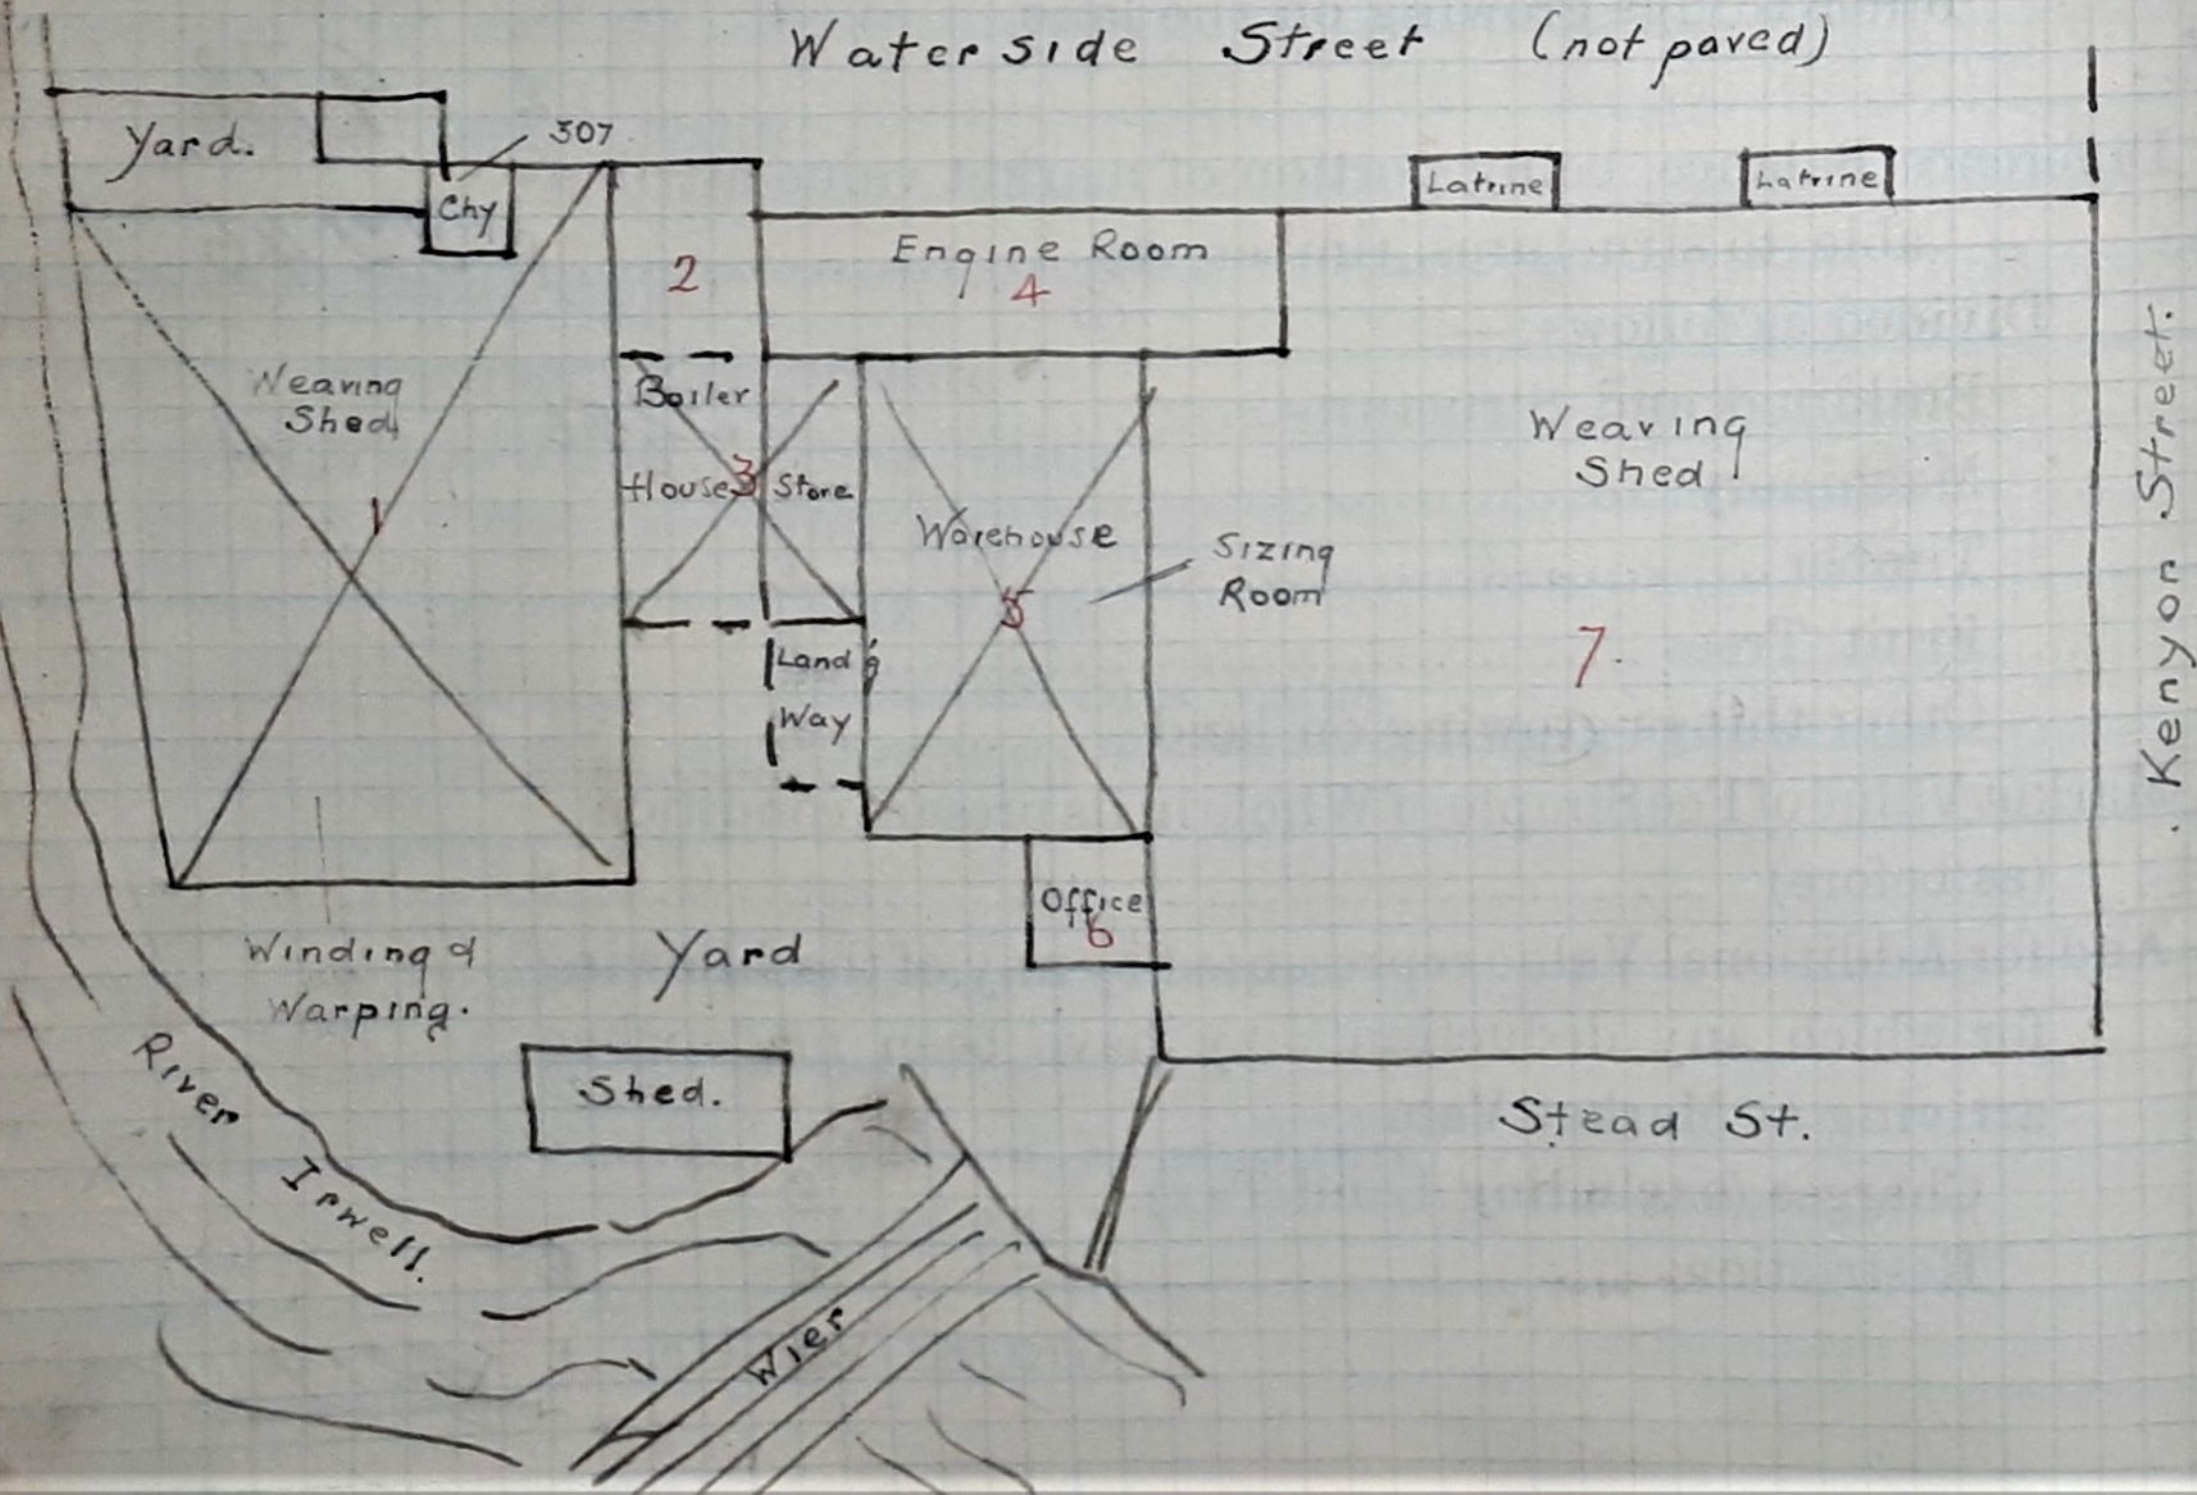 Waterside Street (not paved)
Yard.
307
Chy
Latrine
Latrine
Engine Room
2
4
Weaving
Shed
Boiler
House
3
Store
1
Warehouse
Sizing
Room
5
Weaving
Shed
7.
Kenyon Street.
Land'g
Way
Office
6
Winding &
Warping.
Yard
Shed.
Stead St.
River Irwell.
Wier